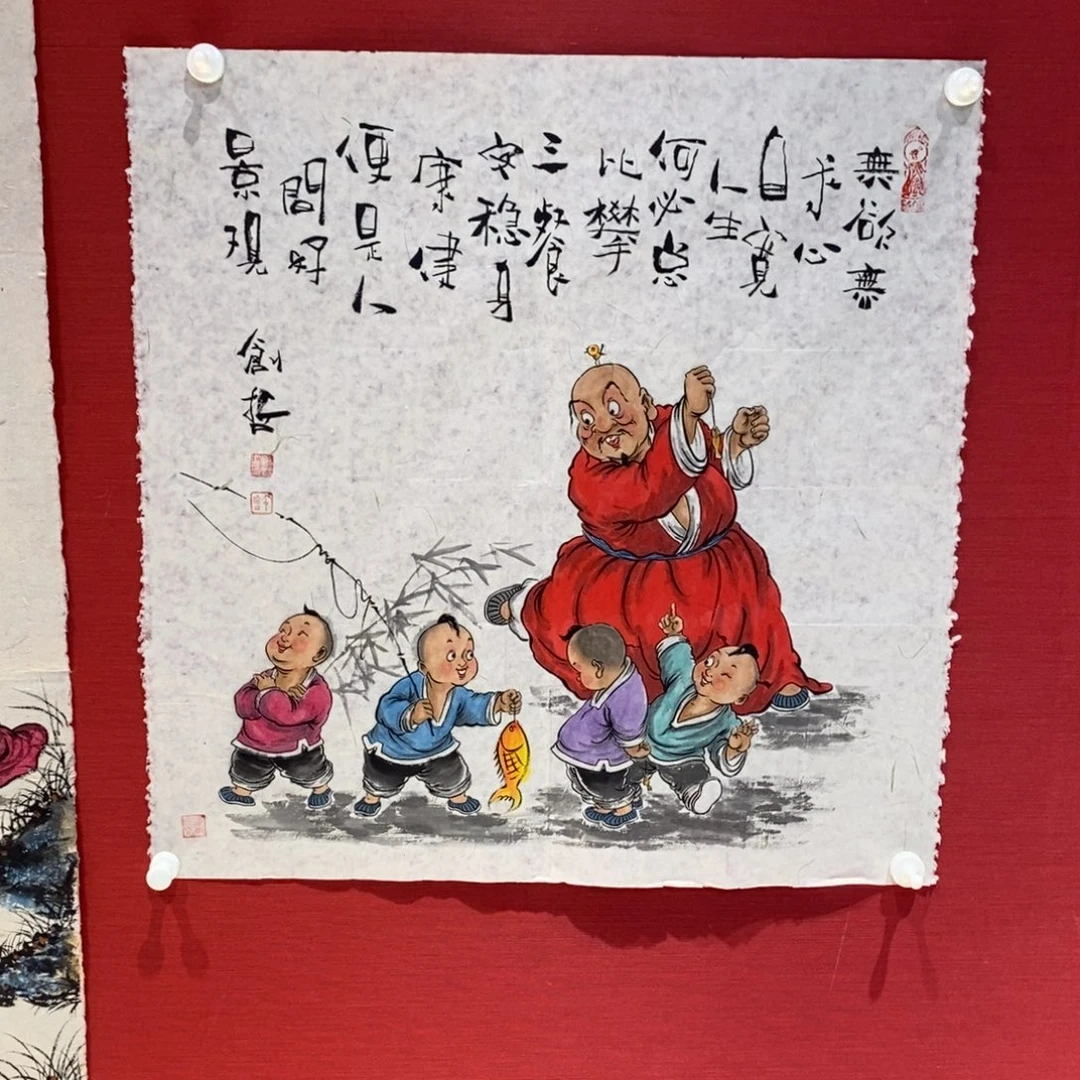 無欲無
求心
自寬
人生
何必总
比攀
三餐
安稳身
康健
便是人
間好
景观
創哲